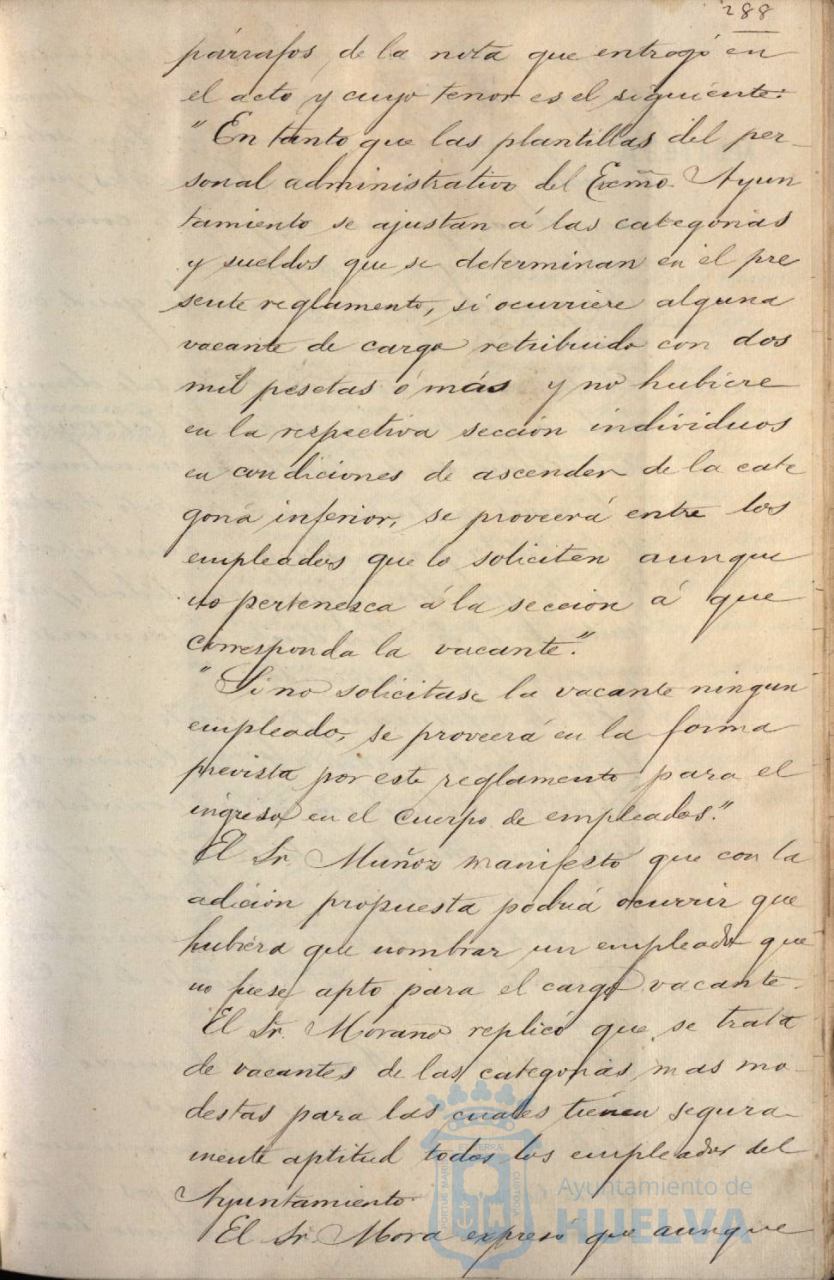 288
párrafos, de la nota que entregó en
el acto y cuyo tenor es el siguiente:
"En tanto que las plantillas del per-
sonal administrativo del Excmo. Ayun
tamiento se ajustan á las categorias
y sueldos que se determinan en el pre
sente reglamento, si ocurriere alguna
vacante de cargo retribuido con dos
mil pesetas ó más y no hubiere
en la respectiva sección individuos
en condiciones de ascender de la cate
goria inferior, se proveerá entre los
empleados que lo soliciten aunque
no pertenesca á la sección á que
corresponda la vacante."
"Si no solicitase la vacante ningun
empleado, se proveerá en la forma
prevista por este reglamento para el
ingreso en el cuerpo de empleados."
El Sr. Muñoz manifestó que con la
adición propuesta podria ocurrir que
hubiera que nombrar un empleado que
no fuese apto para el cargo vacante.
El Sr. Morano replicó que se trata
de vacantes de las categorias mas mo-
destas para las cuales tienen segura-
mente aptitud todos los empleados del
Ayuntamiento.
El Sr. Mora expresó que aunque
Ayuntamiento de
HUELVA